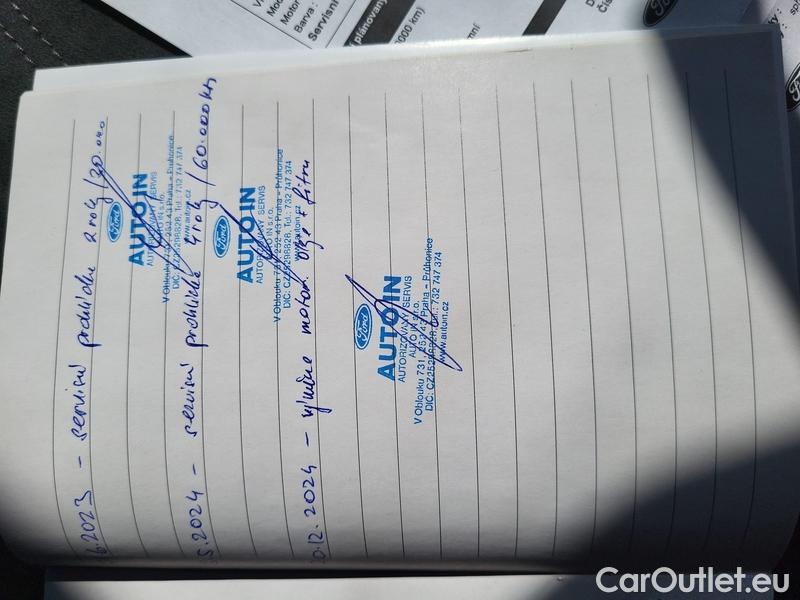 .6.2023 - servisní prohlídka 2 roky /30.000
Ford
AUTO IN
AUTORIZOVANÝ SERVIS
AUTO IN s.r.o.
V Oblouku 731, 252 43 Praha - Průhonice
DIČ: CZ25298828, Tel.: 732 747 374
www.autoin.cz
.5.2024 - servisní prohlídka 4 roky /60.000 km
Ford
AUTO IN
AUTORIZOVANÝ SERVIS
AUTO IN s.r.o.
V Oblouku 731, 252 43 Praha - Průhonice
DIČ: CZ25298828, Tel.: 732 747 374
www.autoin.cz
.12.2024 - výměna motor. oleje + filtru
Ford
AUTO IN
AUTORIZOVANÝ SERVIS
AUTO IN s.r.o.
V Oblouku 731, 252 43 Praha - Průhonice
DIČ: CZ25298828, Tel.: 732 747 374
www.autoin.cz
Motor
Barva :
Servisní
plánovaný
000 km)
Ford
CarOutlet.eu